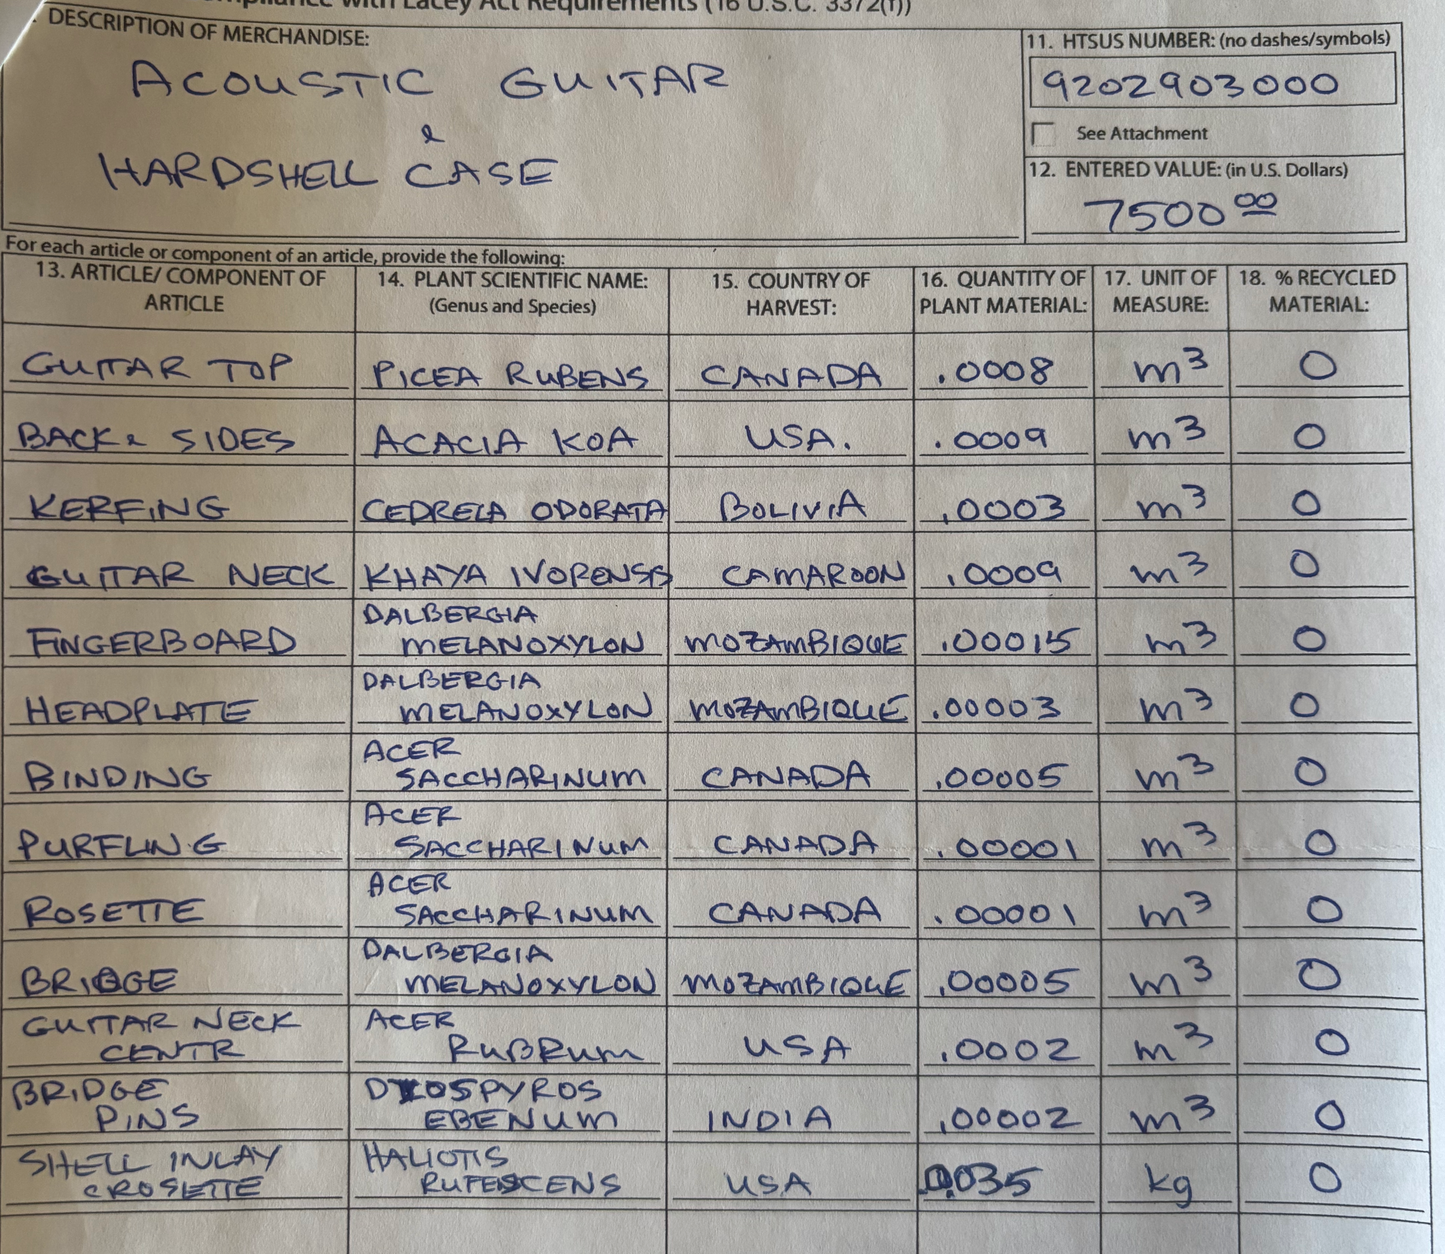 compliance with Lacey Act Requirements (16 U.S.C. 3372(f))
. DESCRIPTION OF MERCHANDISE:
ACOUSTIC GUITAR
&
HARDSHELL CASE
11. HTSUS NUMBER: (no dashes/symbols)
9202903000
See Attachment
12. ENTERED VALUE: (in U.S. Dollars)
7500 00
For each article or component of an article, provide the following:
13. ARTICLE/ COMPONENT OF ARTICLE 14. PLANT SCIENTIFIC NAME: (Genus and Species) 15. COUNTRY OF HARVEST: 16. QUANTITY OF PLANT MATERIAL: 17. UNIT OF MEASURE: 18. % RECYCLED MATERIAL:
GUITAR TOP PICEA RUBENS CANADA .0008 m³ 0
BACK & SIDES ACACIA KOA USA. .0009 m³ 0
KERFING CEDRELA ODORATA BOLIVIA .0003 m³ 0
GUITAR NECK KHAYA IVORENSIS CAMAROON .0009 m³ 0
FINGERBOARD DALBERGIA MELANOXYLON MOZAMBIQUE .00015 m³ 0
HEADPLATE DALBERGIA MELANOXYLON MOZAMBIQUE .00003 m³ 0
BINDING ACER SACCHARINUM CANADA .00005 m³ 0
PURFLING ACER SACCHARINUM CANADA .00001 m³ 0
ROSETTE ACER SACCHARINUM CANADA .00001 m³ 0
BRIDGE DALBERGIA MELANOXYLON MOZAMBIQUE .00005 m³ 0
GUITAR NECK CENTR ACER RUBRUM USA .0002 m³ 0
BRIDGE PINS DIOSPYROS EBENUM INDIA .00002 m³ 0
SHELL INLAY CROSETTE HALIOTIS RUFESCENS USA 0.035 kg 0